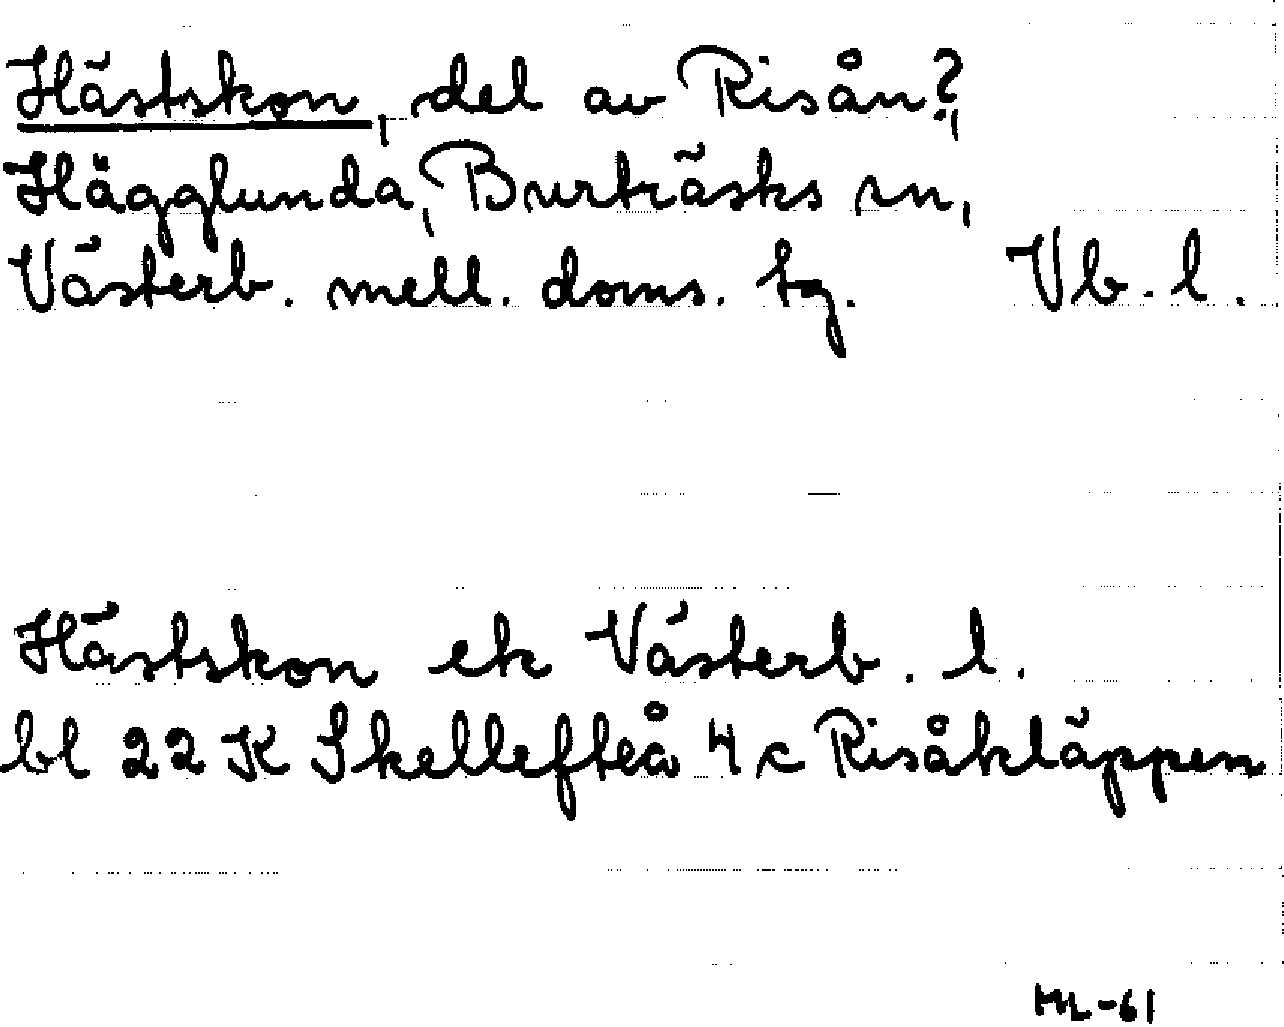 Hästskon, del av Risån?,
Hägglunda, Burträsks sn,
Västerb. mell. doms. tg. Vb. l.
Hästskon ek Västerb. l.
bl 22 K Skellefteå 4 c Risåkläppen
ML-61